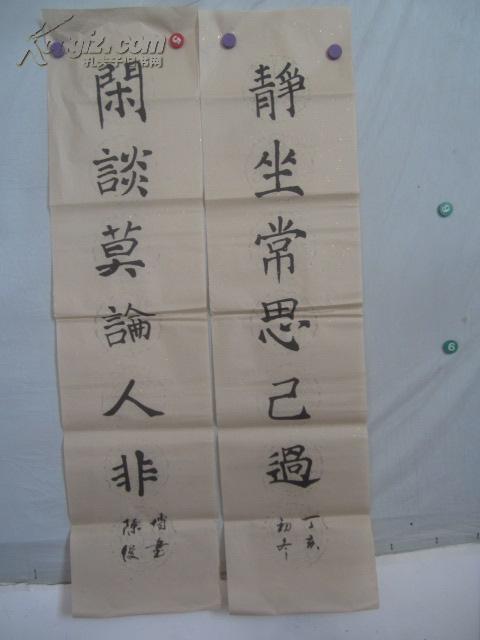 靜坐常思己過
丁亥
初冬
閑談莫論人非
書
陳俊
Kongfz.com
孔夫子旧书网
5
9